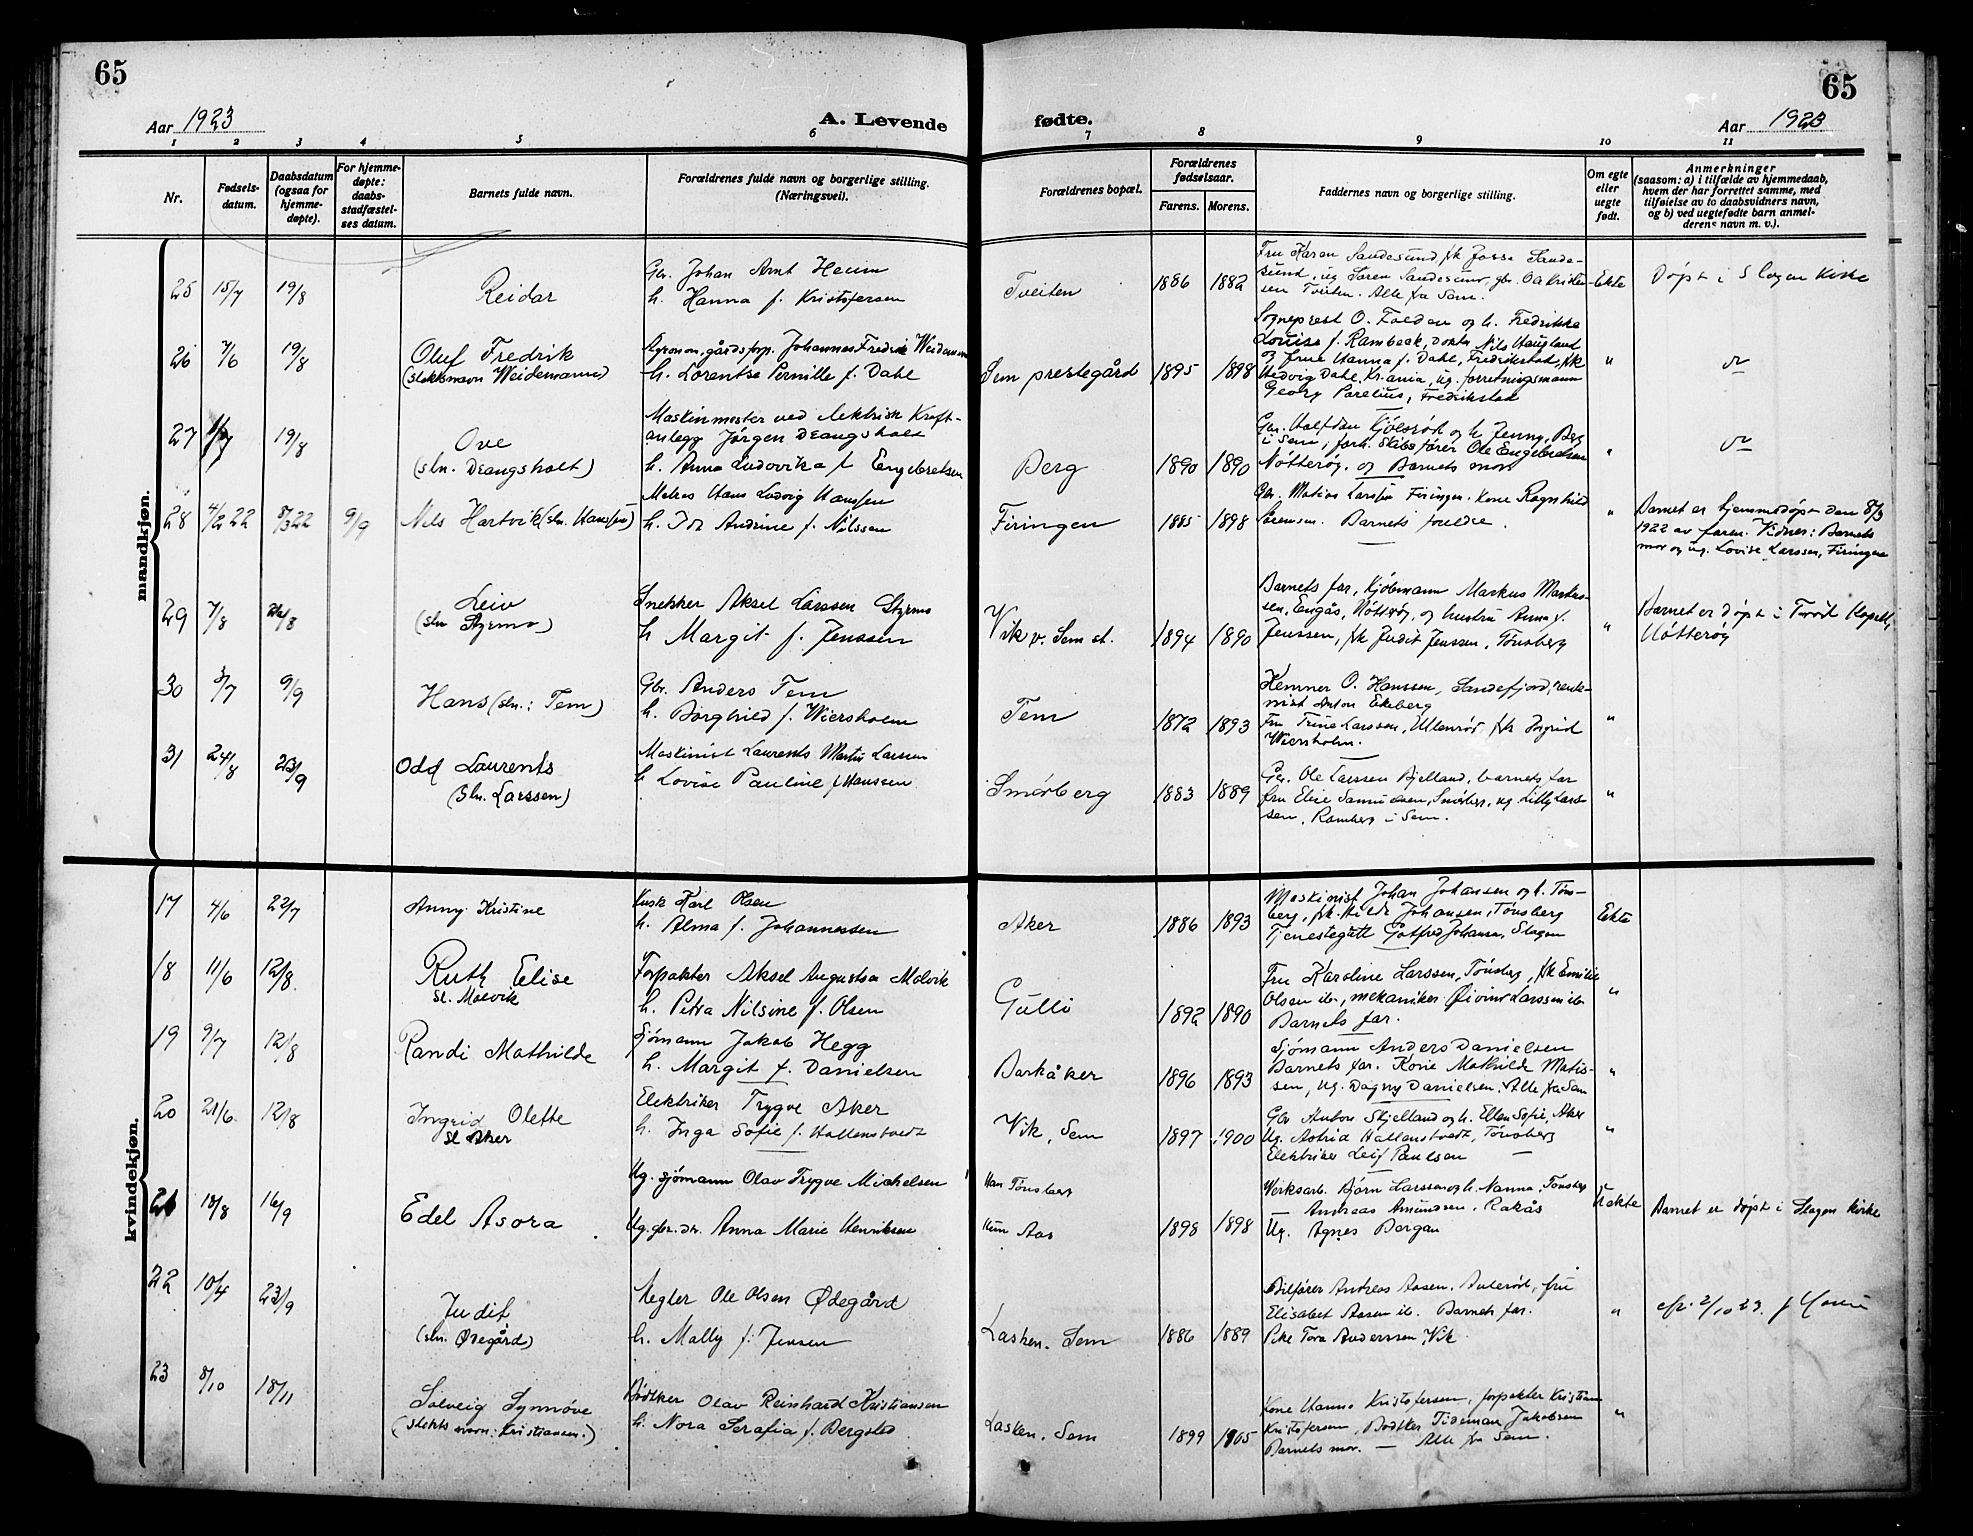 65
65
Aar 1923
A. Levende
fødte.
Aar 1923
1 2 3 4 5 6 7 8 9 10 11
Nr.
Fødsels-
datum.
Daabsdatum
(ogsaa for
hjemme-
døpte).
For hjemme-
døpte:
daabs-
stadfæstel-
ses datum.
Barnets fulde navn.
Forældrenes fulde navn og borgerlige stilling.
(Næringsvei).
Forældrenes bopæl.
Forældrenes
fødselsaar.
Farens. Morens.
Faddernes navn og borgerlige stilling.
Om egte
eller
uegte
født.
Anmerkninger
(saasom: a) i tilfælde av hjemmedaab,
hvem der har forrettet samme, med
tilføielse av to daabsvidners navn,
og b) ved uegtefødte barn anmel-
derens navn m. v.).
mandkjøn.
25 15/7 19/8
Reidar
Gbr. Johan Arnt
h. Hanna f. Kristofersen
Tveiten
1886 1882
Fru Karen Sandesund, frk
sund, ug. Søren Sandesund, gbr.
sen Tveiten. Alle fra Sem.
Ekte
Døpt i Slagen Kirke
26 7/6 19/8
Oluf Fredrik
(slektsnavn Weidemann)
Agronom, gårdsforp. Johannes Fredrik Weidemann
h. Lorentse Pernille f. Dahl
Sem prestegård
1895 1898
Sogneprest O. Foldan og h. Fredrikke
Louise f. Rambeck, Doktor Nils Haugland
og frue Hanna f. Dahl, Fredrikstad, frk
Hedvig Dahl, Kr.ania, ug. forretningsmann
Georg Parelius, Fredrikstad
"
27 19/8
Ove
(sln. Drangsholt)
Maskinmester ved elektrisk Kraft-
anlegg Jørgen Drangsholt
h. Anna Ludovika f. Engebretsen
Berg
1890 1890
Gbr. Halfdan og h. Jenny, Berg
i Sem, forh. Skibsfører Ole Engebretsen
Nøtterøy, og Barnets mor
"
28 4/2 22 8/3 22 9/9
Nils Hartvik (sln. Hanssen)
Hans Ludvig Hanssen
h. Ida Andrine f. Nilssen
Firingen
1885 1898
Gbr. Matias Larssen Firingen. Kone Ragnhild
Sørensen. Barnets foreldre.
"
Barnet er hjemmedøpt den 8/3
1922 av faren. Vidner: Barnets
mor og ug. Lovise Larssen, Firingen
29 7/8 26/8
Leiv
(sln Styrmo)
Snekker Aksel Larssen Styrmo
h Margit f. Jenssen
Vik v. Sem st.
1894 1890
Barnets far, Kjøbmann Markus
sen, Engås, Nøtterøy, og hustru Anna f.
Jenssen, frk Judit Jenssen, Tønsberg
"
Barnet er døpt i Kapell,
Nøtterøy
30 3/7 9/9
Hans (sln.: Tem)
Gbr. Anders Tem
h. Borghild f. Wiersholm
Tem
1872 1893
Kemner O. Hanssen, Sandefjord,
Anton Ekeberg
Fru Trine Larssen, Ullenrød frk Ingrid
Wiersholm.
"
31 24/8 23/9
Odd Laurents
(Sln. Larssen)
Maskinist Laurents Martin Larssen
h Lovise Pauline f. Hanssen
Smørberg
1883 1889
Gbr. Ole Larssen Bjelland, barnets far
fru Elise Samuelsen, Smørberg, ug. Lilly Lars-
sen, Ramberg i Sem.
"
kvindekjøn.
17 4/6 22/7
Anny Kristine
Kusk Karl Olsen
h. Alma f. Johannessen
Aker
1886 1893
Maskinist Johan Johansen og h. Tøns-
berg, frk. Hilda Johansen, Tønsberg
Tjenestegutt Gotfred Johansen, Slagen
Ekte
18 11/6 12/8
Ruth Elise
Sl. Molvik
Forpakter Aksel Augustsen Molvik
h. Petra Nilsine f. Olsen
Gulli
1892 1890
Fru Karoline Larssen, Tønsberg, frk Emilie
Olsen ib., mekaniker Øivind Larssen ib
Barnets far.
"
19 9/7 12/8
Randi Mathilde
Sjømann Jakob Hegg
h. Margit f. Danielsen
Barkåker
1896 1893
Sjømann Anders Danielsen
Barnets far. Kone Mathilde Matis-
sen, ug. Dagny Danielsen. Alle fra Sem
"
20 21/6 12/8
Ingrid Olette
Sl Aker
Elektriker Trygve Aker
h. Inga Sofie f. Hallenstvedt
Vik, Sem
1897 1900
Gbr Anton Skjelland og h. Ellen Sofie, Aker
Ug. Astrid Hallenstvedt, Tønsberg
Elektriker Leif Paulsen
"
21 18/8 16/9
Edel Asora
Ug. sjømann Olav Trygve Michelsen
Ug. gbr. dr. Anna Marie Henriksen
Han Tønsberg
Hun Aas
1898 1898
Verksarb. Bjørn Larssen og h. Nanna, Tønsberg
Andreas Amundsen, Rakås
Ug. Agnes Borgan
Uekte
Barnet er døpt i Slagen Kirke
22 10/4 23/9
Judit
(sln. Ødegård)
Megler Ole Olsen Ødegård
h. Mally f. Jensen
Lasken. Sem
1886 1889
Bilfører Andreas Aasen. Auterød, fru
Elisabet Aasen ib. Barnets far.
Pike Tora Anderssen, Vik
"
2/10 23.
23 8/10 18/11
Solveig Synnøve
(slekts navn: Kristiansen.)
Bødker Olav Reinhard Kristiansen
h. Nora Serafia f. Bergsted
Lasken. Sem
1899 1905
Kone Hanna Kristofersen, forpakter Kristian
Kristofersen, Bødker Tideman Jakobsen
Barnets mor. — Alle fra Sem.
"